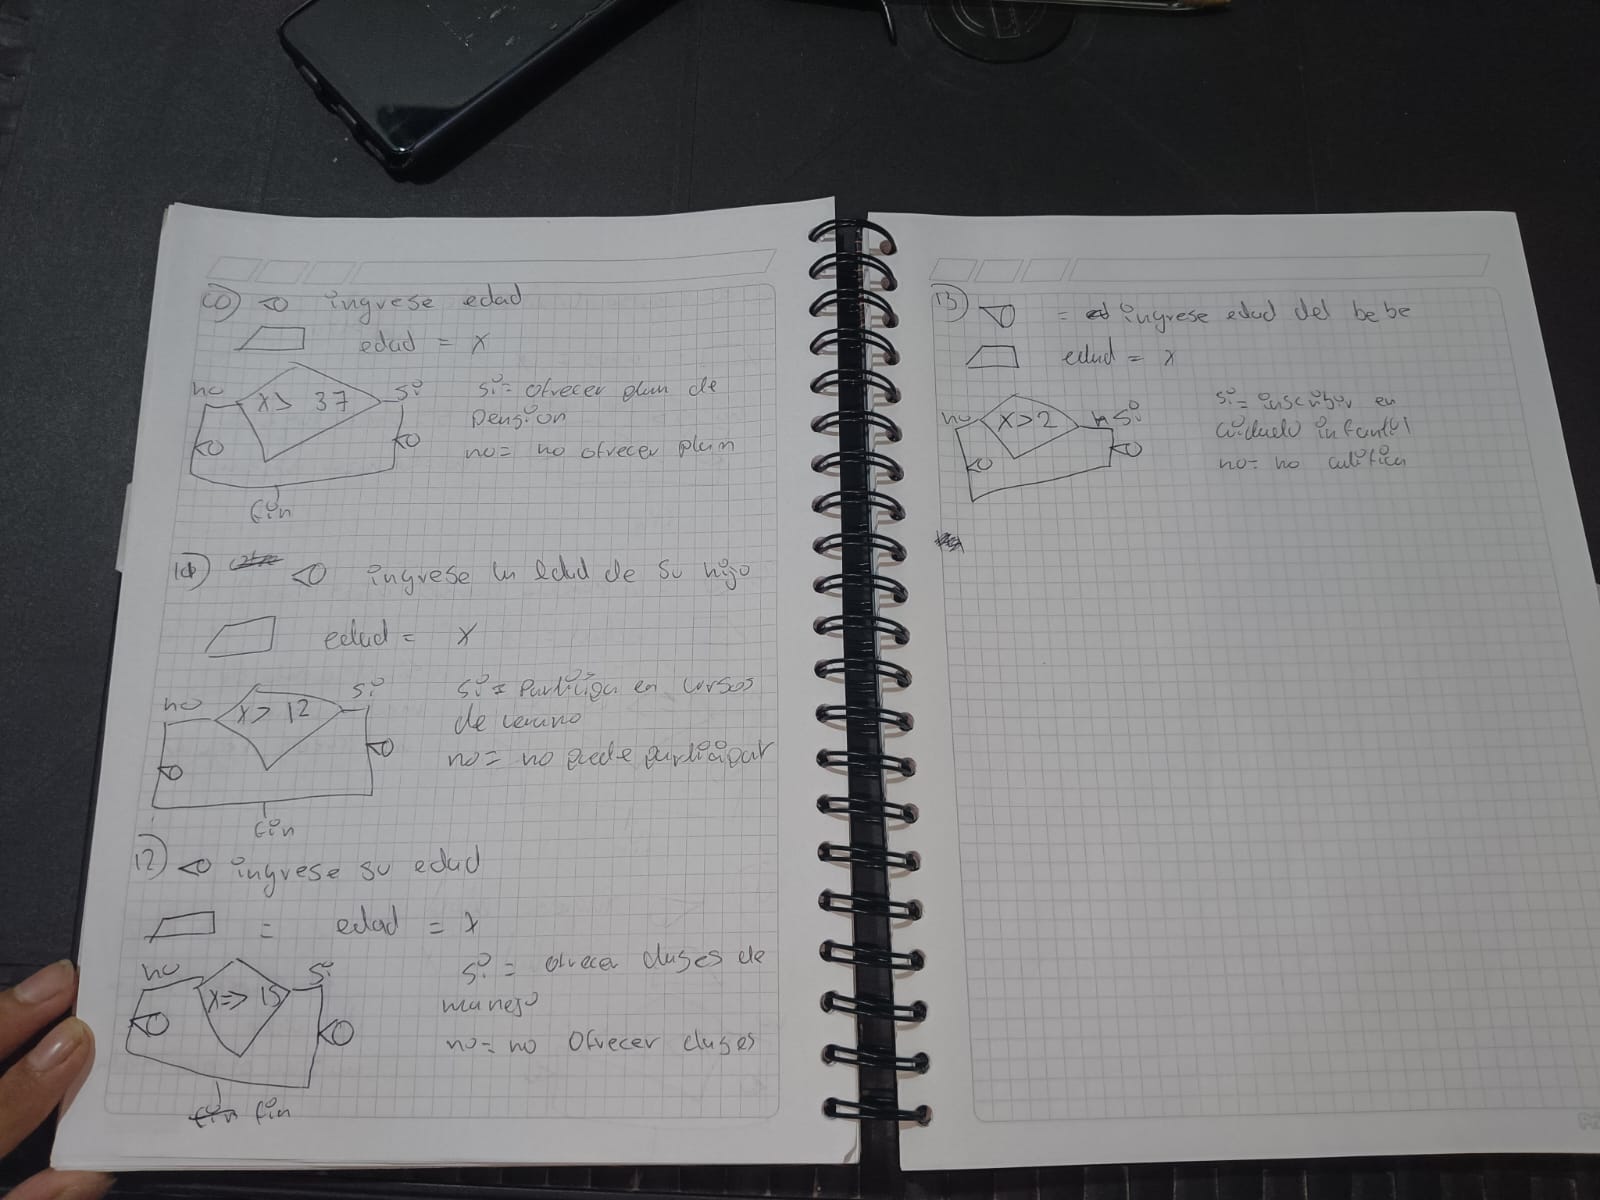 10) ingrese edad
edad = x
no x> 37 si
si= ofrecer plan de
pension
no= no ofrecer plan
fin
ingrese la edad de su hijo
edad = x
no x> 12 si
si= Participa en cursos
de verano
no= no puede participar
fin
12) ingrese su edad
= edad = x
no x=> 15 si
si = ofrecer clases de
manejo
no= no ofrecer clases
fin
13) = ingrese edad del bebe
edad = x
no x>2 si
si= inscribir en
cuidado infantil
no= no califica